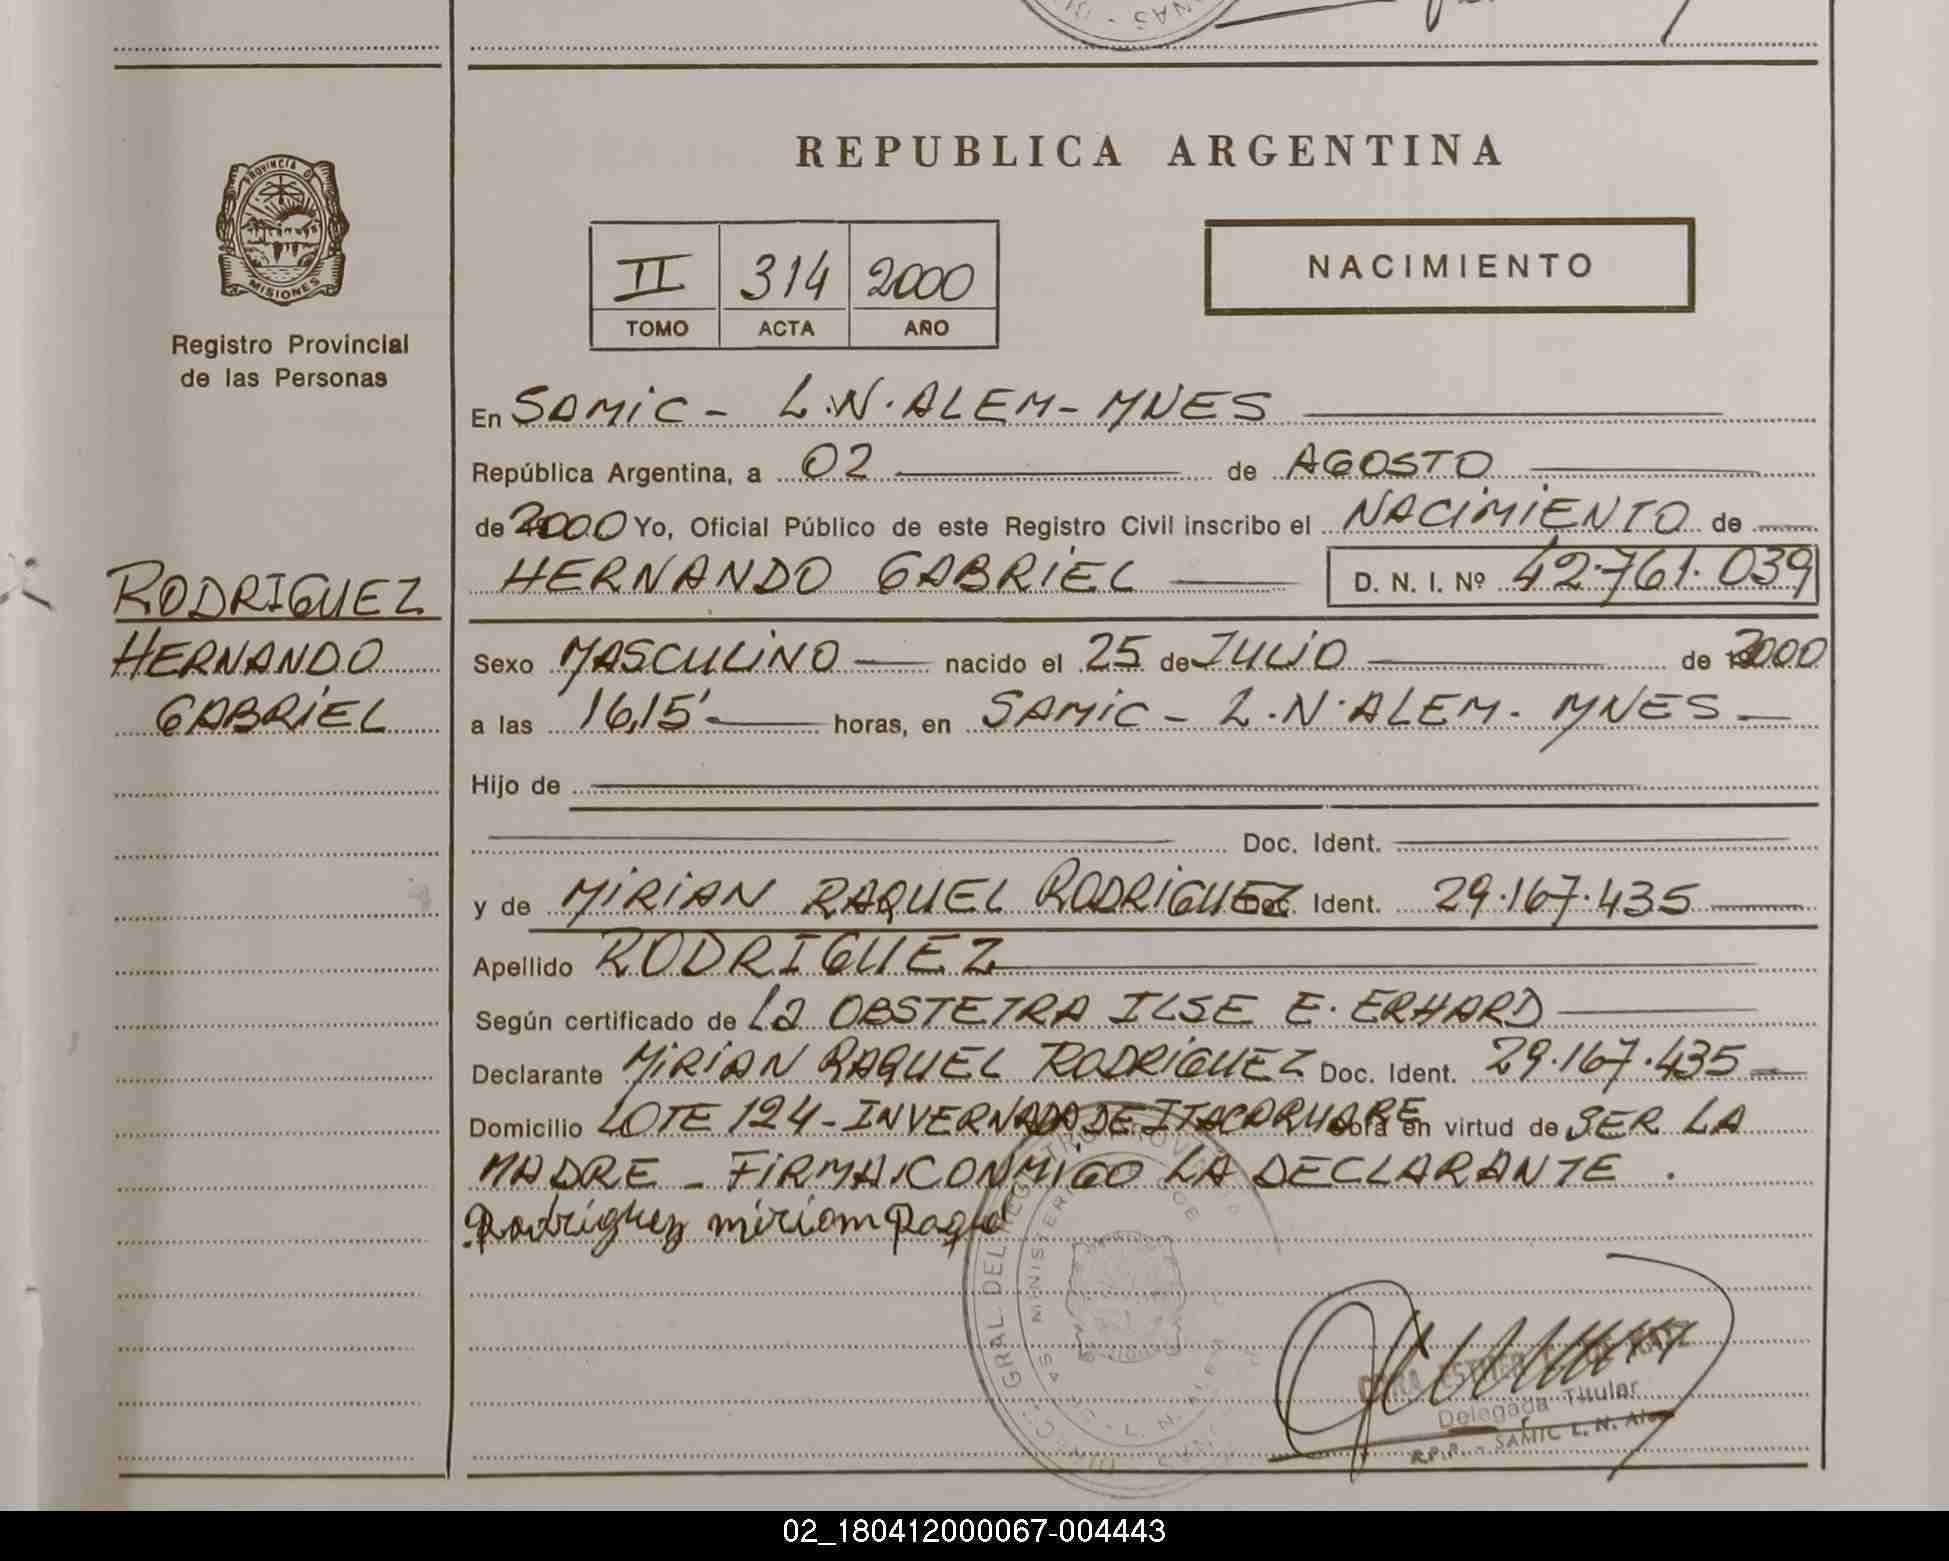 REPUBLICA ARGENTINA
PROVINCIA D
MISIONES
Registro Provincial
de las Personas
RODRIGUEZ
HERNANDO
GABRIEL
II 314 2000
TOMO ACTA AÑO
NACIMIENTO
En SAMIC - L.N. ALEM - MNES
República Argentina, a 02 de AGOSTO
de 2000 Yo, Oficial Público de este Registro Civil inscribo el NACIMIENTO de
HERNANDO GABRIEL D. N. I. Nº 42.761.039
Sexo MASCULINO nacido el 25 de JULIO de 2000
a las 16,15' horas, en SAMIC - L.N. ALEM. MNES
Hijo de
Doc. Ident.
y de MIRIAN RAQUEL RODRIGUEZ Doc. Ident. 29.167.435
Apellido RODRIGUEZ
Según certificado de La OBSTETRA ILSE E. ERHARD
Declarante MIRIAN RAQUEL RODRIGUEZ Doc. Ident. 29.167.435
Domicilio LOTE 124 - INVERNADA DE ITACARUARE Obra en virtud de SER LA
MADRE - FIRMA CONMIGO LA DECLARANTE.
Rodriguez miriam Raquel
ESTHER
Delegada Titular
R.P.P. - SAMIC L. N. Alem
02_180412000067-004443